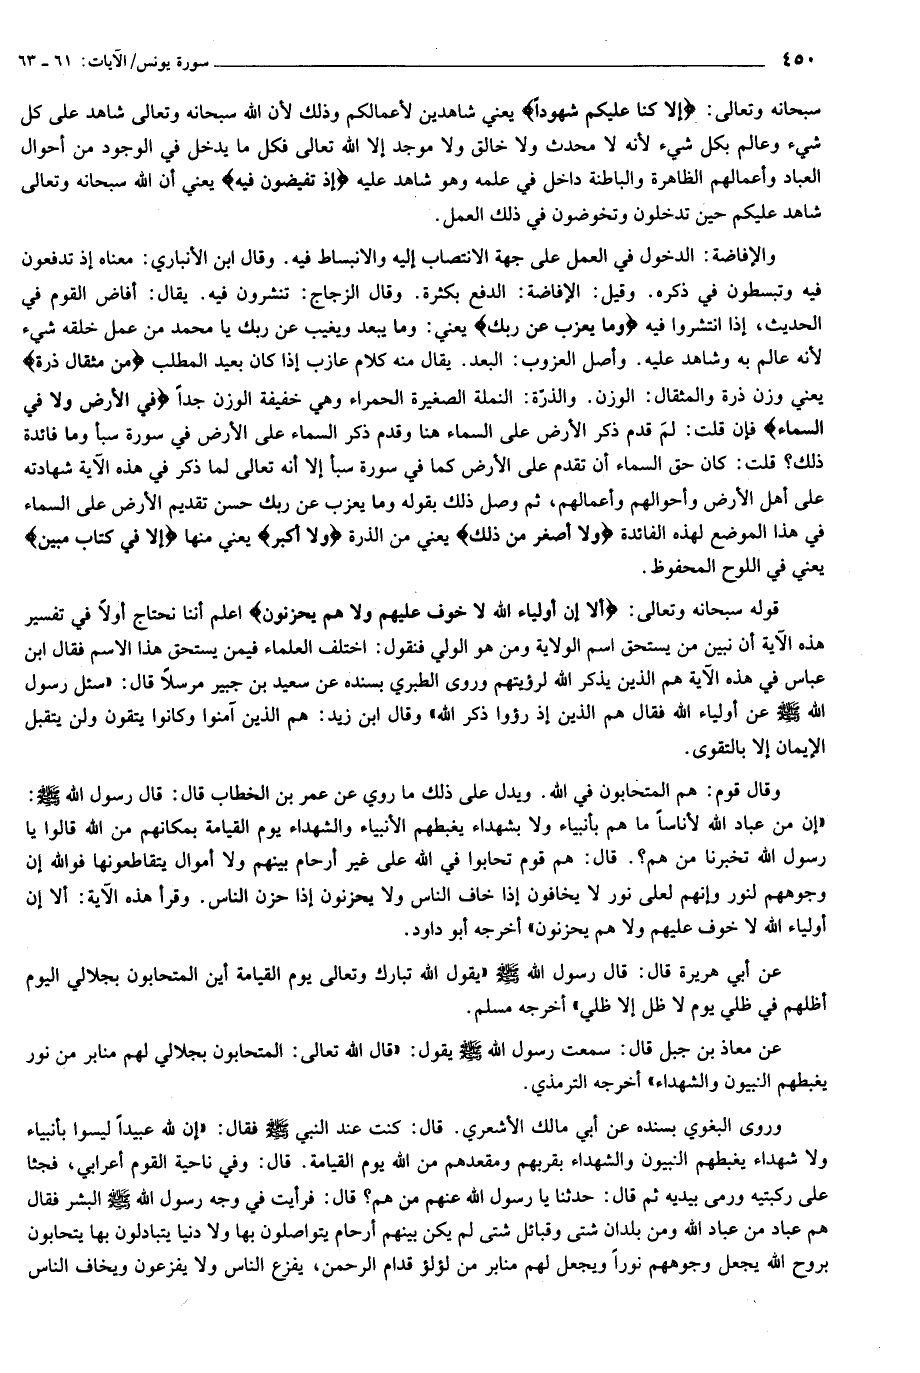 ٤٥٠ سورة يونس/ الآيات: ٦١ ـ ٦٣
سبحانه وتعالى: ﴿إلا كنا عليكم شهوداً﴾ يعني شاهدين لأعمالكم وذلك لأن الله سبحانه وتعالى شاهد على كل
شيء وعالم بكل شيء لأنه لا محدث ولا خالق ولا موجد إلا الله تعالى فكل ما يدخل في الوجود من أحوال
العباد وأعمالهم الظاهرة والباطنة داخل في علمه وهو شاهد عليه ﴿إذ تفيضون فيه﴾ يعني أن الله سبحانه وتعالى
شاهد عليكم حين تدخلون وتخوضون في ذلك العمل.
والإفاضة: الدخول في العمل على جهة الانتصاب إليه والانبساط فيه. وقال ابن الأنباري: معناه إذ تدفعون
فيه وتبسطون في ذكره. وقيل: الإفاضة: الدفع بكثرة. وقال الزجاج: تنشرون فيه. يقال: أفاض القوم في
الحديث، إذا انتشروا فيه ﴿وما يعزب عن ربك﴾ يعني: وما يبعد ويغيب عن ربك يا محمد من عمل خلقه شيء
لأنه عالم به وشاهد عليه. وأصل العزوب: البعد. يقال منه كلام عازب إذا كان بعيد المطلب ﴿من مثقال ذرة﴾
يعني وزن ذرة والمثقال: الوزن. والذرّة: النملة الصغيرة الحمراء وهي خفيفة الوزن جداً ﴿في الأرض ولا في
السماء﴾ فإن قلت: لمَ قدم ذكر الأرض على السماء هنا وقدم ذكر السماء على الأرض في سورة سبأ وما فائدة
ذلك؟ قلت: كان حق السماء أن تقدم على الأرض كما في سورة سبأ إلا أنه تعالى لما ذكر في هذه الآية شهادته
على أهل الأرض وأحوالهم وأعمالهم، ثم وصل ذلك بقوله وما يعزب عن ربك حسن تقديم الأرض على السماء
في هذا الموضع لهذه الفائدة ﴿ولا أصغر من ذلك﴾ يعني من الذرة ﴿ولا أكبر﴾ يعني منها ﴿إلا في كتاب مبين﴾
يعني في اللوح المحفوظ.
قوله سبحانه وتعالى: ﴿ألا إن أولياء الله لا خوف عليهم ولا هم يحزنون﴾ اعلم أننا نحتاج أولاً في تفسير
هذه الآية أن نبين من يستحق اسم الولاية ومن هو الولي فنقول: اختلف العلماء فيمن يستحق هذا الاسم فقال ابن
عباس في هذه الآية هم الذين يذكر الله لرؤيتهم وروى الطبري بسنده عن سعيد بن جبير مرسلاً قال: «سئل رسول
الله ﷺ عن أولياء الله فقال هم الذين إذ رؤوا ذكر الله» وقال ابن زيد: هم الذين آمنوا وكانوا يتقون ولن يتقبل
الإيمان إلا بالتقوى.
وقال قوم: هم المتحابون في الله. ويدل على ذلك ما روي عن عمر بن الخطاب قال: قال رسول الله ﷺ:
«إن من عباد الله لأناساً ما هم بأنبياء ولا بشهداء يغبطهم الأنبياء والشهداء يوم القيامة بمكانهم من الله قالوا يا
رسول الله تخبرنا من هم؟. قال: هم قوم تحابوا في الله على غير أرحام بينهم ولا أموال يتقاطعونها فوالله إن
وجوههم لنور وإنهم لعلى نور لا يخافون إذا خاف الناس ولا يحزنون إذا حزن الناس. وقرأ هذه الآية: ألا إن
أولياء الله لا خوف عليهم ولا هم يحزنون» أخرجه أبو داود.
عن أبي هريرة قال: قال رسول الله ﷺ «يقول الله تبارك وتعالى يوم القيامة أين المتحابون بجلالي اليوم
أظلهم في ظلي يوم لا ظل إلا ظلي» أخرجه مسلم.
عن معاذ بن جبل قال: سمعت رسول الله ﷺ يقول: «قال الله تعالى: المتحابون بجلالي لهم منابر من نور
يغبطهم النبيون والشهداء» أخرجه الترمذي.
وروى البغوي بسنده عن أبي مالك الأشعري. قال: كنت عند النبي ﷺ فقال: «إن لله عبيداً ليسوا بأنبياء
ولا شهداء يغبطهم النبيون والشهداء بقربهم ومقعدهم من الله يوم القيامة. قال: وفي ناحية القوم أعرابي، فجثا
على ركبتيه ورمى بيديه ثم قال: حدثنا يا رسول الله عنهم من هم؟ قال: فرأيت في وجه رسول الله ﷺ البشر فقال
هم عباد من عباد الله ومن بلدان شتى وقبائل شتى لم يكن بينهم أرحام يتواصلون بها ولا دنيا يتبادلون بها يتحابون
بروح الله يجعل وجوههم نوراً ويجعل لهم منابر من لؤلؤ قدام الرحمن، يفزع الناس ولا يفزعون ويخاف الناس